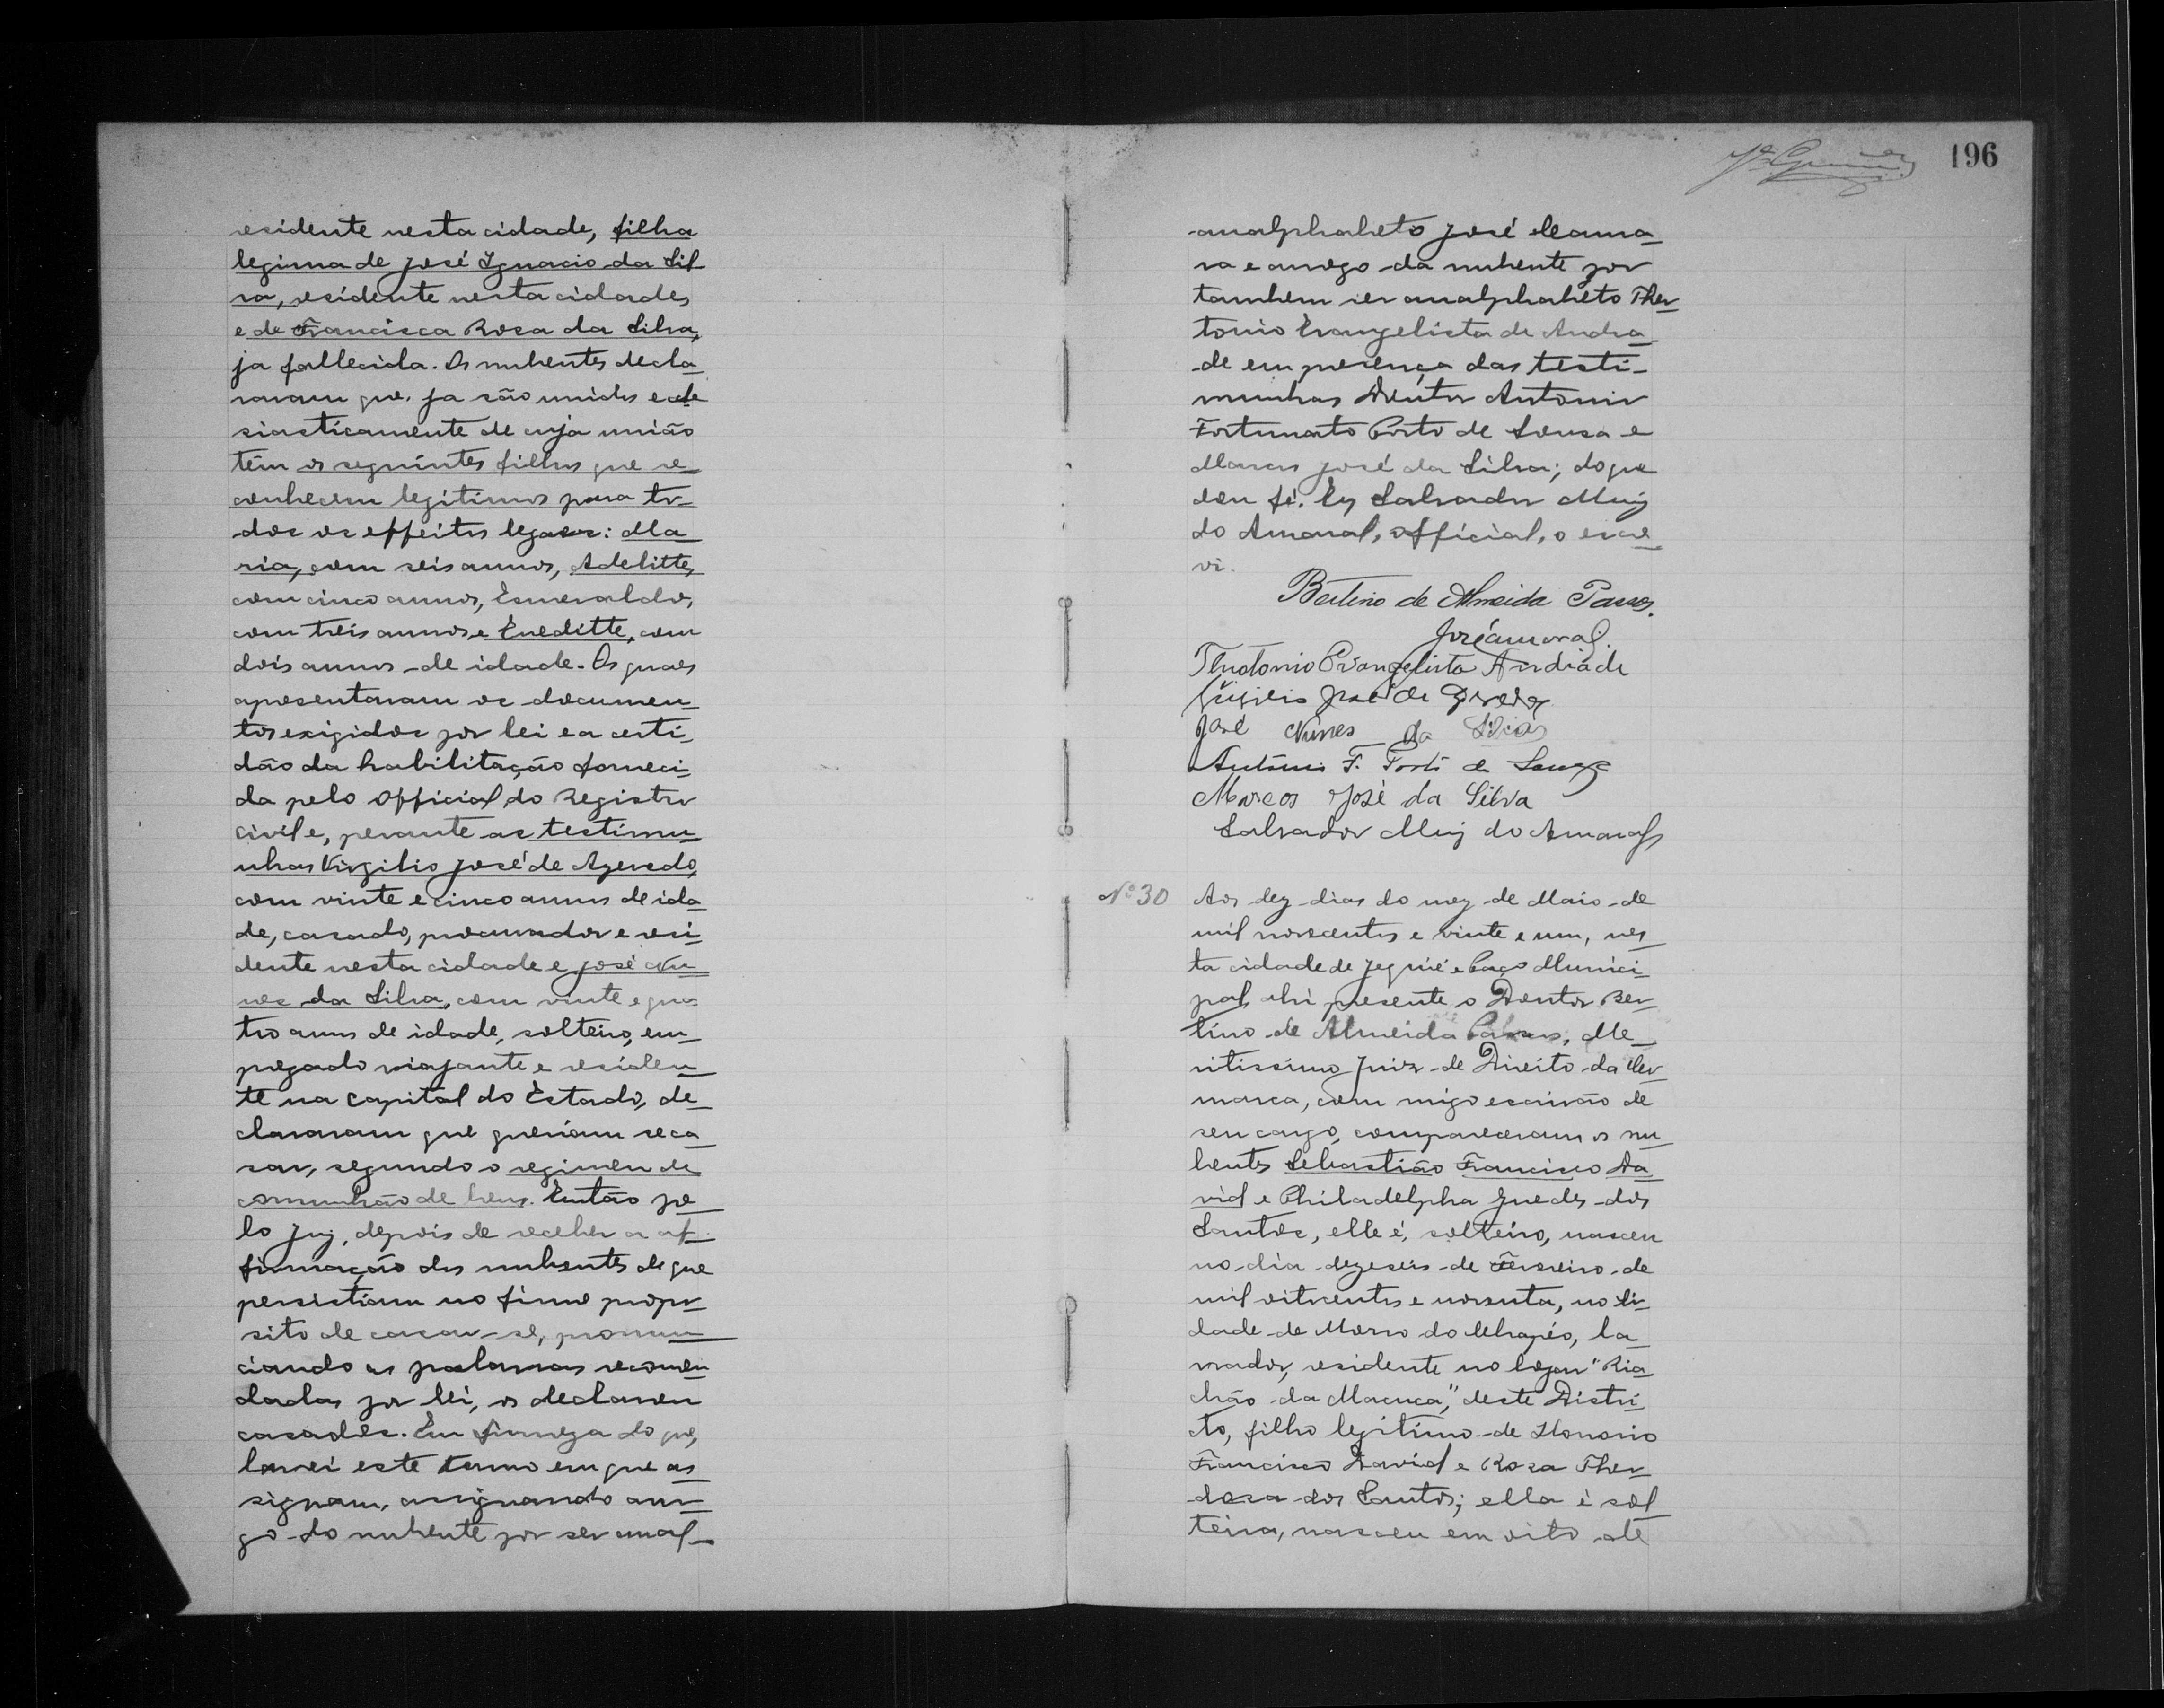 residente nesta cidade, filha
legima de José Ignacio da Sil
va, residente nesta cidade,
e de Francisca Rosa da Silva,
ja fallecida. Os nubentes decla
raram que, ja são unidos eccle
siasticamente de cuja união
têm os seguintes filhos que re
conhecem legitimos para to-
dos os effeitos legaes: Ma
ria, com seis annos, Adelitte,
com cinco annos, Esmeraldo,
com treis annos e Eneditte, com
dois annos de idade. Os quaes
apresentaram os documen
tos exigidos por lei e a certi
dão da habilitação forneci
da pelo Official do Registro
civil e, perante as testimu
nhas Virgilio José de Azevedo,
com vinte e cinco annos de ida
de, casado, procurador e resi
dente nesta cidade e José Nu
nes da Silva, com vinte e qua
tro anns de idade, solteiro, em
pregado viajante e residen
te na Capital do Estado, de
clararam que queriam se ca
sar, segundo o regimen de
comunhão de bens. Então pe
lo Juiz, depois de receber a af
firmação dos nubentes de que
persistiam no firme propo
sito de casar-se, pronun
ciando as palavras recomen
dadas por lei, os declarou
casados. Em firmeza do que,
lavrei este termo em que as
signam, assignando a ro
go do nubente por ser anal-
196
analphabeto José Camara
ra e a rogo da nubente por
tambem ser analphabeto Theo
tonio Evangelista de Andra
de em presença das testi-
munhas Doutor Antonio
Fortunato Porto de Sousa e
Marcos José da Silva; do que
dou fé. Eu Salvador Muniz
do Amaral, official, o escre
vi.
Bertino de Almeida Passos.
José Amaral.
Theotonio Evangelista Andrade
Virgilio José de Azevedo
José Nunes da Silva
Antonio F. Porto de Souza
Marcos José da Silva
Salvador Muniz do Amaral
Nº 30 Aos dez dias do mez de Maio de
mil novecentos e vinte e um, nes
ta cidade de Jequié e Paço Munici
pal, ahi presente o Doutor Ber
tino de Almeida Passos, Me
ritissimo Juiz de Direito da Co
marca, com migo escrivão de
seu cargo, compareceram os nu
bentes Sebastião Francisco Da
vid e Philadelpha Guedes dos
Santos, elle é, solteiro, nasceu
no dia dezeseis de Fevereiro de
mil oitocentos e noventa, no Ci
dade de Morro do Chapéo, la
vrador, residente no logar "Ria
chão da Macuca," deste Distri
cto, filho legitimo de Honorio
Francisco David e Roza Theo
dora dos Santos; ella é sol
teira, nasceu em oito de